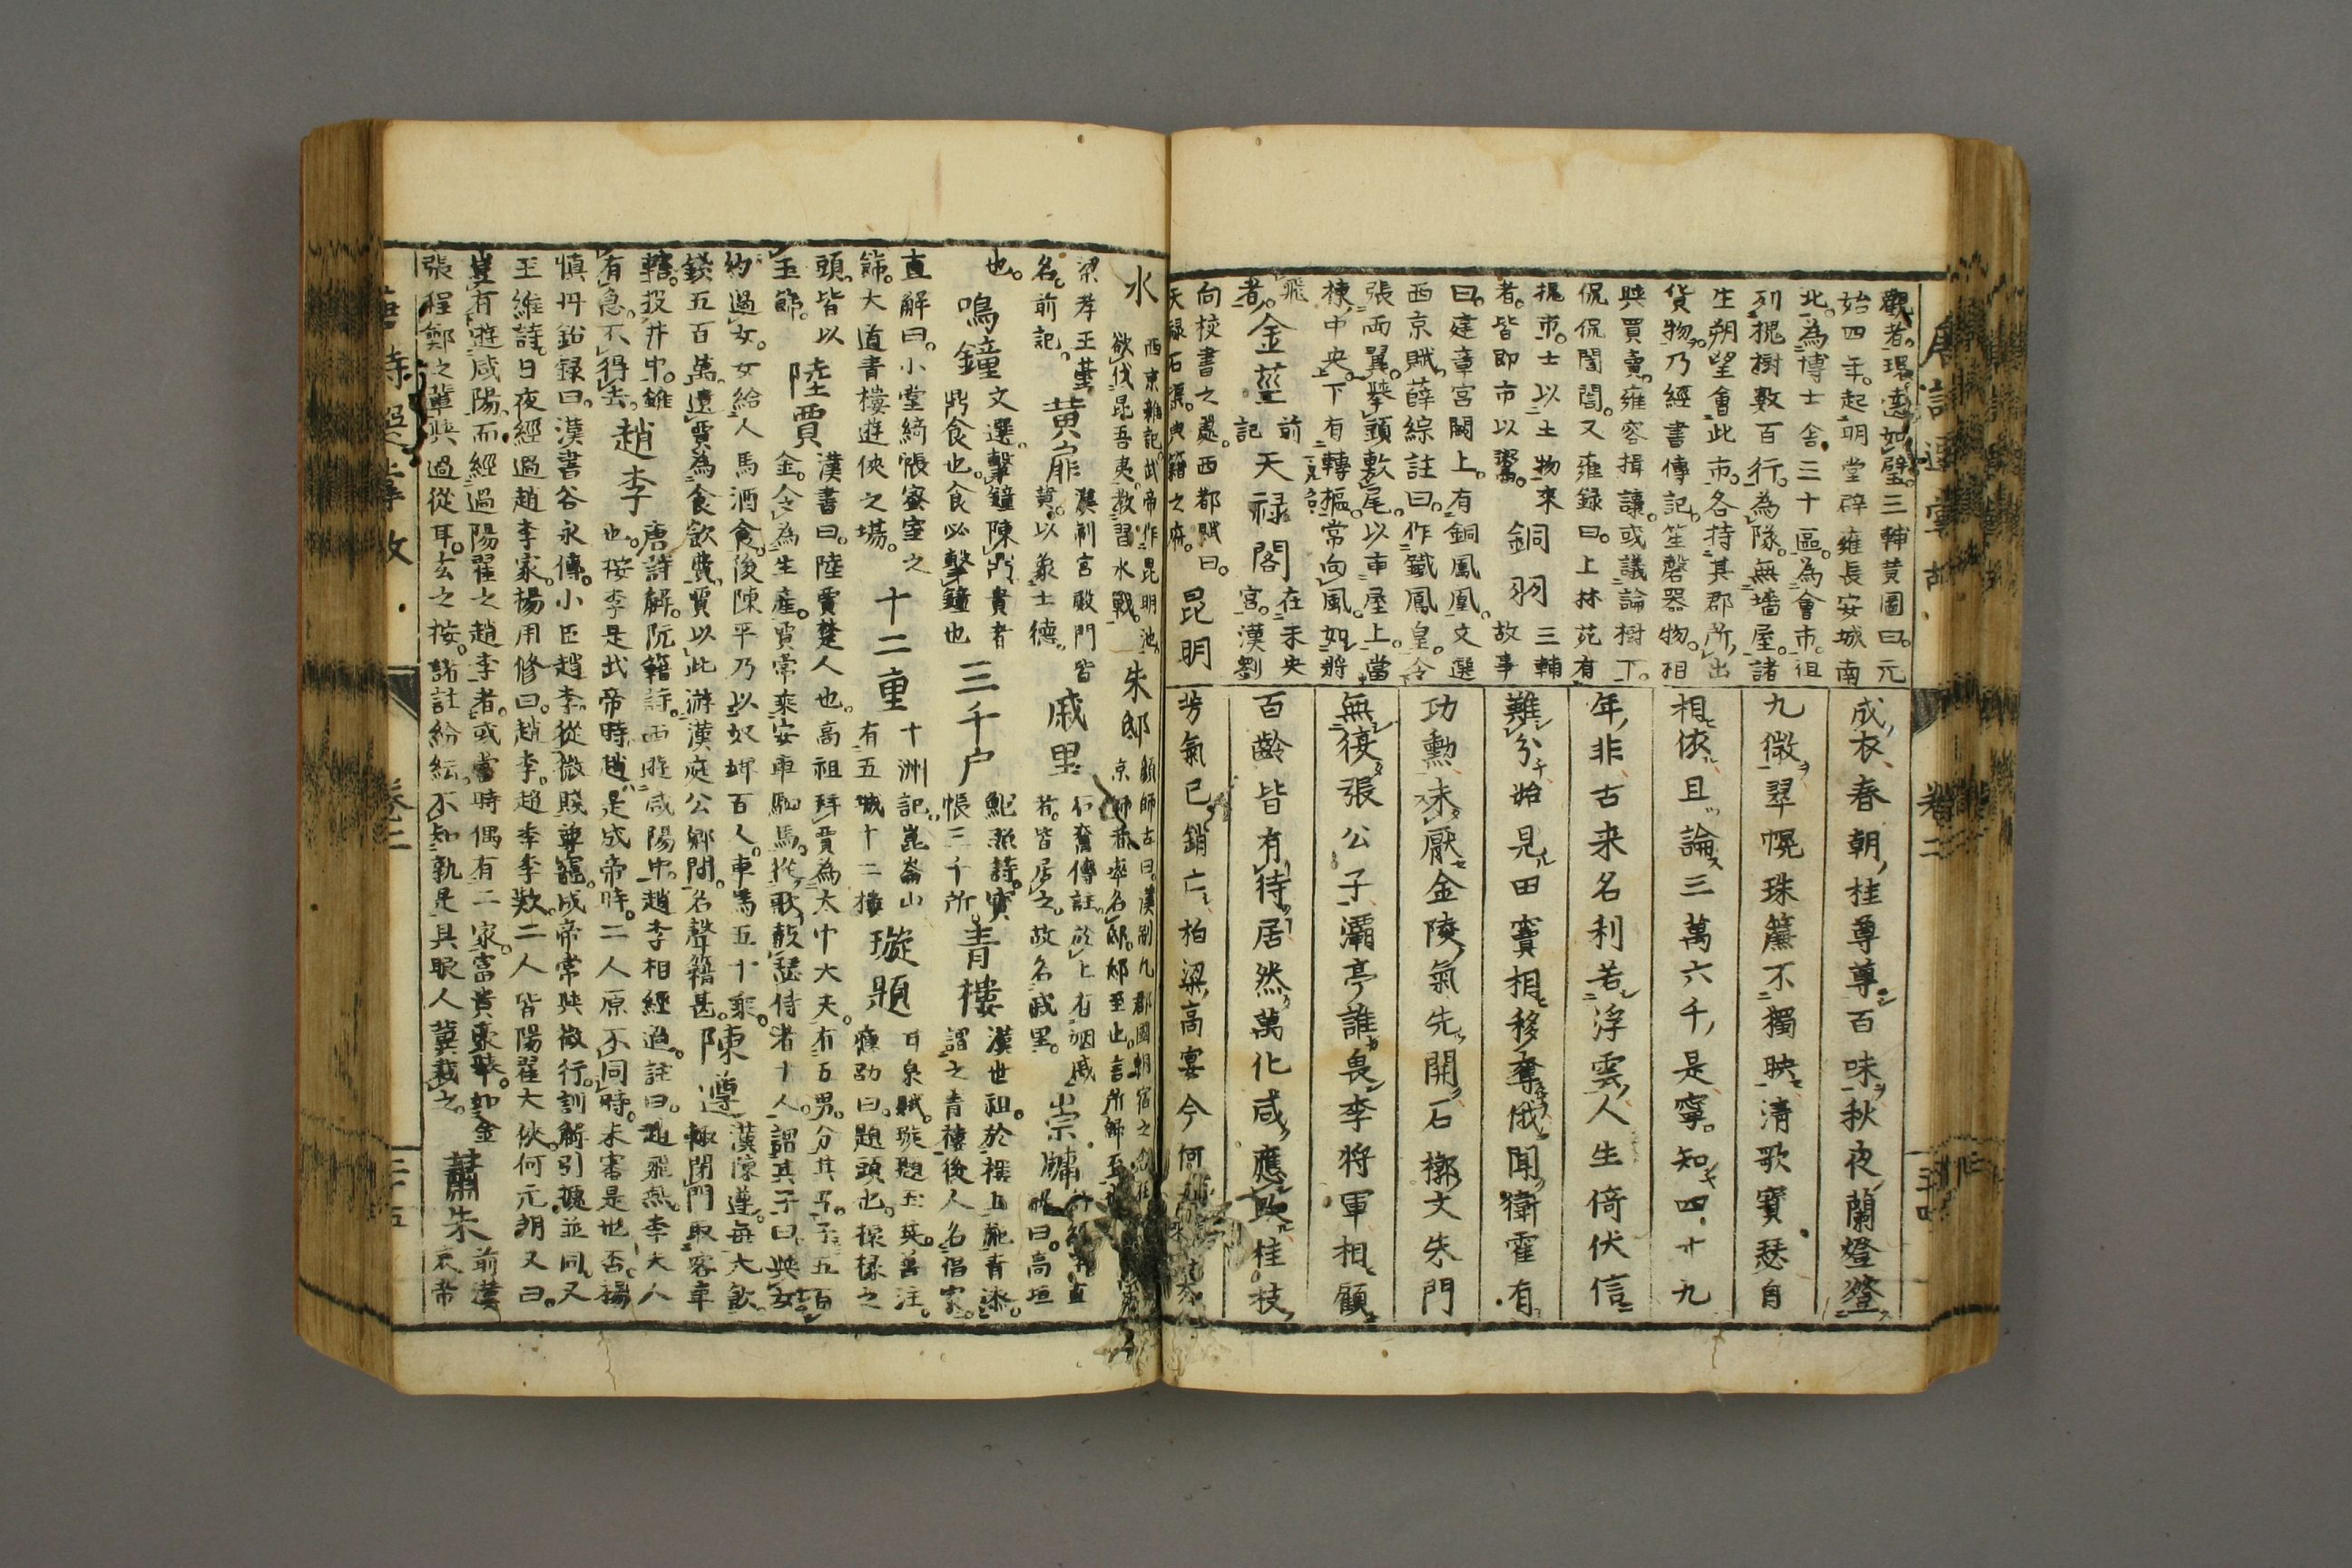 唐詩選掌故 卷二
觀者。環遶如璧。三輔黄圖曰。元
始四年。起明堂辟雍長安城南
北。為博士舎三十區。為會市。徂
列槐樹數百行。為隊。無墻屋。諸
生朔望會此市。各持其郡所出
貨物。乃經書傳記。笙磬器物。相
與買賣。雍容揖讓。或議論樹下。
侃侃誾誾。又雍録曰。上林苑有
槐市。士以土物來 銅羽 三輔
者。皆即市以鬻。 故事
曰。建章宮闕上。有銅鳳凰。文選
西京賦。薛綜註曰。作鐵鳳皇。令
張兩翼。擧頭敷尾。以車屋上。當
棟中央。下有轉樞。常向風。如將
飛
者。金莖 前記 天禄閣 在未央宮。漢劉
向校書之處。西都賦曰。
天禄石渠。典籍之府。 昆明
成衣春朝桂尊尊百味秋夜蘭燈燈
九微翠幌珠簾不獨映清歌寶瑟自
相依且論三萬六千是寧知四十九
年非古来名利若浮雲人生倚伏信
難分始見田竇相移奪俄聞衛霍有
功勲未厭金陵氣先開石槨文朱門
無復張公子灞亭誰畏李将軍相顧
百齡皆有待居然萬化咸應改桂枝
芳氣已銷亡柏梁高宴今何
水 西京雜記。武帝作昆明池。欲伐昆吾夷。教習水戰。 朱邸 顔師古曰。漢制九郡國朝宿之
梁孝王薨 黄扉 漢制宮殿門皆黄。以象土德。 戚里 石奮傳註。於上有姻戚者。皆居之。故名戚里。 崇墉
名前記。 曰。高垣
也。 鳴鐘 文選。擊鐘陳鼎。貴者鼎食也。食必擊鐘也 三千户 帳三千所。 青樓 漢世祖。於樓上施青漆。謂之青樓。後人名倡家。
直解曰。小堂綺帳。窗室之飾。大道青樓。遊俠之場。 十二重 十洲記。崑崙山有五城十二樓 璇題 甘泉賦。璇題玉英。善注。應劭曰。題頭也。榱椽之
頭。皆以玉飾。 陸賈 漢書曰。陸賈楚人也。高祖拜賈為大中大夫。有五男。分其子。子五百
金。令為生産。賈常乘安車駟馬。從歌鼓瑟侍者十人。謂其子曰。與女
約。過女。女給人馬酒食。後陳平乃以奴婢百人。車馬五十乘。
錢五百萬。遺賈為食飲費。賈以此游漢庭公卿間。名聲籍甚。 陳遵 漢陳遵。毎大飲。輒閉門。取客車
轄。投井中。雖
有急。不得去。 趙李 唐詩解。阮籍詩。西遊咸陽中。趙李相經過。註曰。趙飛燕。李夫人
也。按李是武帝時。趙是成帝時。二人原不同時。未審是也否。楊
慎丹鉛録曰。漢書谷永傳。小臣趙李。從微賤尊寵。成帝常與微行。訓解引據並同。又
王維詩。日夜經過趙李家。楊用修曰。趙李。趙季李款。二人皆陽翟大俠。何元朗又曰。
豈有遊咸陽。而經過陽翟之趙李者。或當時偶有二家。富貴豪華。如金
張程鄭之輩。與過從耳。玄之按。諸註紛紜。不知孰是。具眼人冀裁之。 蕭朱 前漢哀帝
唐詩選掌故 卷二 三十五